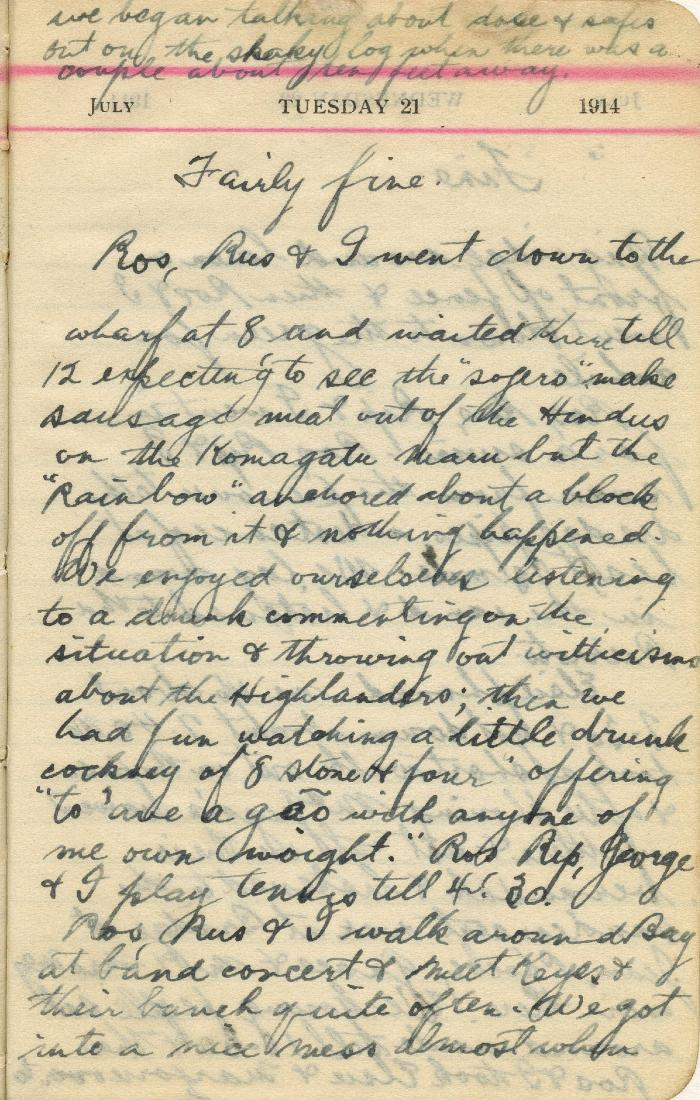 we began talking about dose & safes
out on the shaky log when there was a
couple about ten feet away.
JULY TUESDAY 21 1914
Fairly fine.
Ros, Rus & I went down to the
wharf at 8 and waited there till
12 expecting to see the "sogers" make
sausage meat out of the Hindus
on the Komagatu Maru but the
"Rainbow" anchored about a block
off from it & nothing happened.
We enjoyed ourselves listening
to a drunk commenting on the
situation & throwing out witticisms
about the Highlanders; then we
had fun watching a little drunk
cockney of "8 stone & four" offering
"to 'ave a gāo with anyone of
me own woight." Ros Rip, George
& I play tennis till 4:30.
Ros, Rus & I walk around Bay
at band concert & meet Keyes &
their bunch quite often. We got
into a nice mess almost when